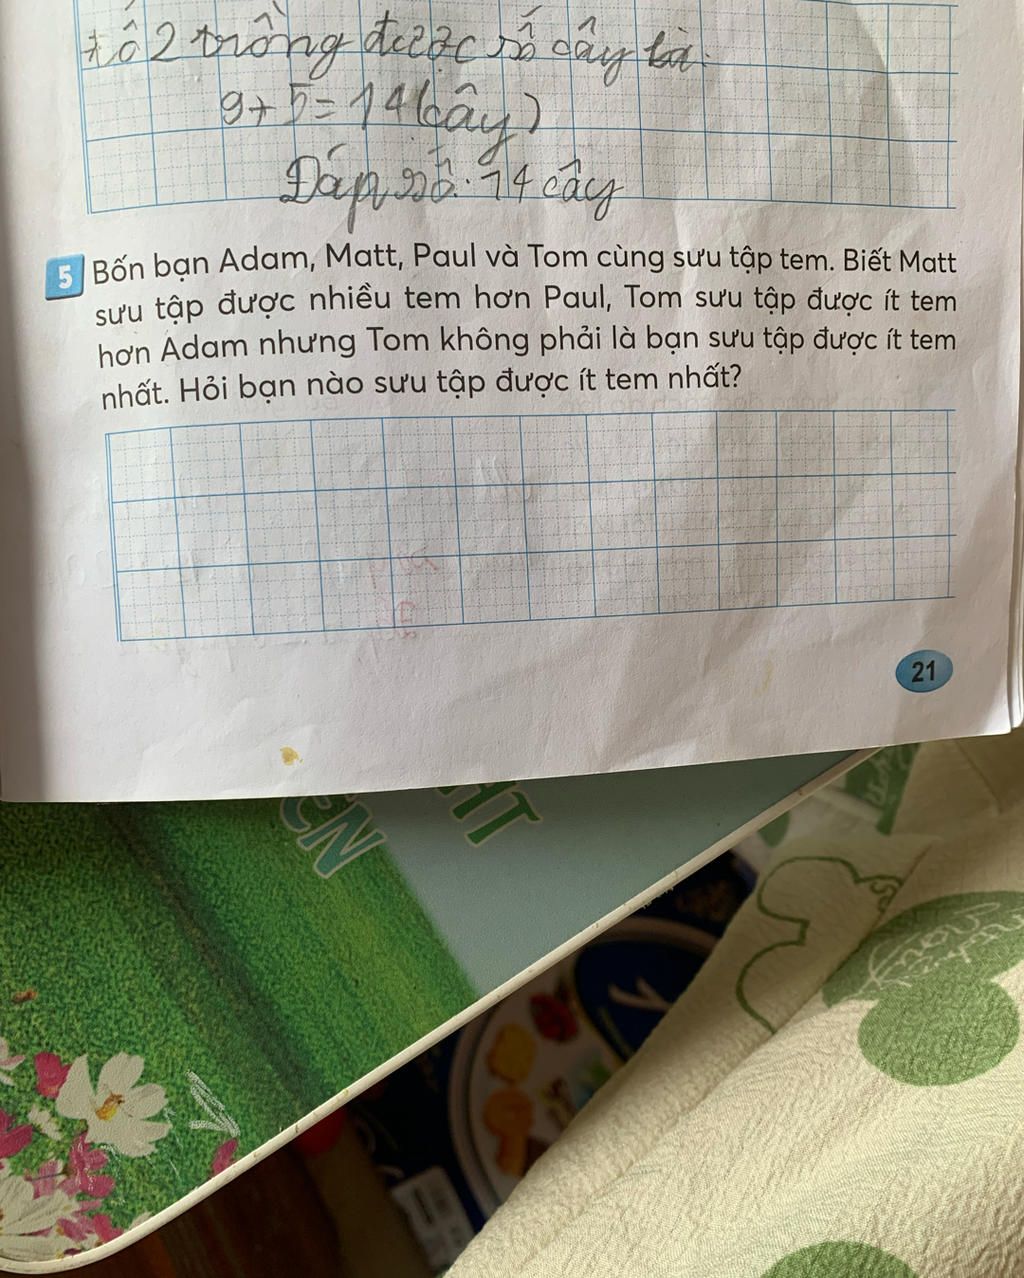 tổ 2 trồng được số cây là:
9 + 5 = 14 (cây)
Đáp số: 14 cây
5 Bốn bạn Adam, Matt, Paul và Tom cùng sưu tập tem. Biết Matt
sưu tập được nhiều tem hơn Paul, Tom sưu tập được ít tem
hơn Adam nhưng Tom không phải là bạn sưu tập được ít tem
nhất. Hỏi bạn nào sưu tập được ít tem nhất?
21